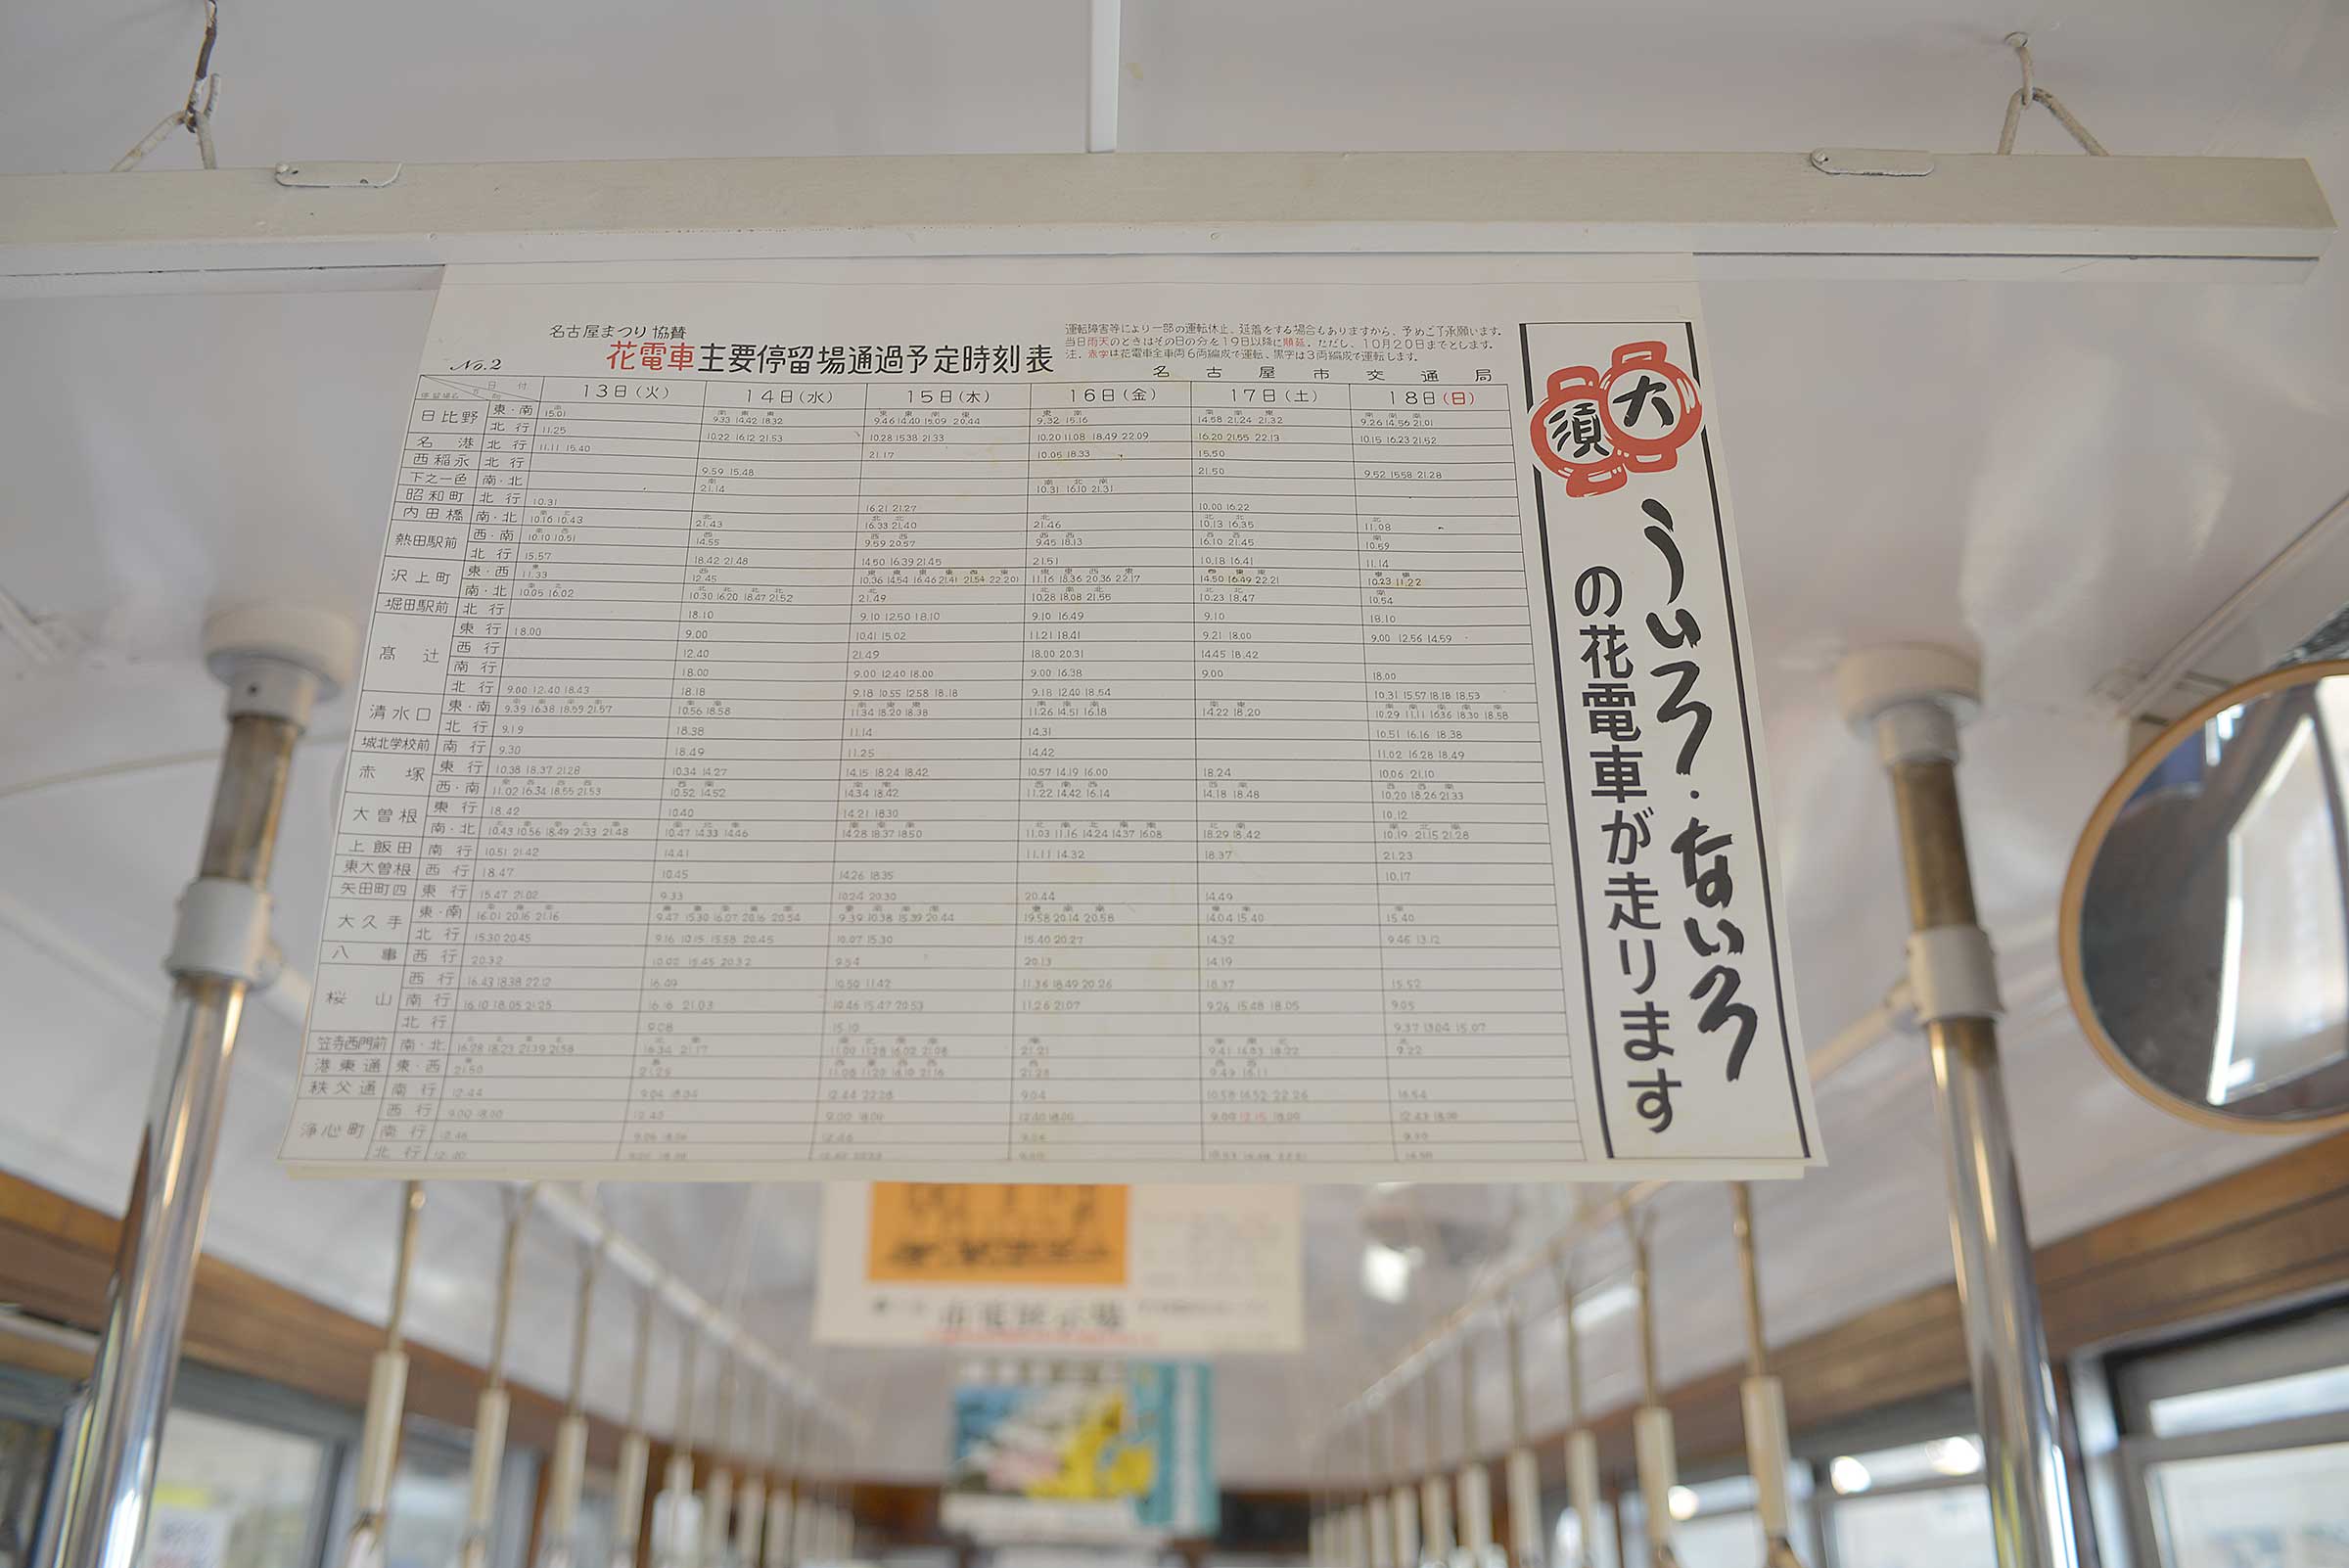 名古屋まつり協賛
No.2 花電車主要停留場通過予定時刻表
運転障害等により一部の運転休止、延着をする場合もありますから、予めご了承願います。
当日雨天のときはその日の分を19日以降に順延。ただし、10月20日までとします。
注、赤字は花電車全車両6両編成で運転、黒字は3両編成で運転します。
名古屋市交通局
日付 13日(火) 14日(水) 15日(木) 16日(金) 17日(土) 18日(日)
日比野 東・南 15.01 9.33 14.42 18.32 9.46 14.40 15.09 20.44 9.32 15.16 14.58 21.24 21.32 9.26 14.56 21.01
北行 11.25 10.22 16.12 21.53 10.28 15.38 21.33 10.20 11.08 18.49 22.09 16.20 21.55 22.13 10.15 16.23 21.52
名港 北行 11.11 15.40 21.17 10.05 18.33 15.50
西稲永 北行 9.59 15.48 21.50 9.52 15.58 21.28
下之一色 南・北 21.14 10.31 16.10 21.31
昭和町 北行 10.31 16.21 21.27 10.00 16.22
内田橋 南・北 10.16 10.43 21.43 16.33 21.40 21.46 10.13 16.35 11.08
熱田駅前 西・南 10.10 10.51 14.55 9.59 20.57 9.45 18.13 16.10 21.45 10.59
北行 15.57 18.42 21.48 14.50 16.39 21.45 21.51 10.18 16.41 11.14
沢上町 東・西 11.33 12.45 10.36 14.54 16.46 21.41 21.54 22.20 11.16 18.36 20.36 22.17 14.50 16.49 22.21 10.23 11.22
南・北 10.05 16.02 10.30 16.20 18.47 21.52 21.49 10.28 18.08 21.55 10.23 18.47 10.54
堀田駅前 北行 18.10 9.10 12.50 18.10 9.10 16.49 9.10 18.10
高辻 東行 18.00 9.00 10.41 15.02 11.21 18.41 9.21 18.00 9.00 12.56 14.59
西行 12.40 21.49 18.00 20.31 14.45 18.42
南行 18.00 9.00 12.40 18.00 9.00 16.38 9.00 18.00
北行 9.00 12.40 18.43 18.18 9.18 10.55 12.58 18.18 9.18 12.40 18.54 10.31 15.57 18.18 18.53
清水口 東・南 9.39 16.38 18.59 21.57 10.56 18.58 11.34 18.20 18.38 11.26 14.51 16.18 14.22 18.20 10.29 11.11 16.36 18.30 18.58
北行 9.19 18.38 11.14 14.31 10.51 16.16 18.38
城北学校前 南行 9.30 18.49 11.25 14.42 11.02 16.28 18.49
赤塚 東行 10.38 18.37 21.28 10.34 14.27 14.15 18.24 18.42 10.57 14.19 16.00 18.24 10.06 21.10
西・南 11.02 16.34 18.55 21.53 10.52 14.52 14.34 18.42 11.22 14.42 16.14 14.18 18.48 10.20 18.26 21.33
大曽根 東行 18.42 10.40 14.21 18.30 10.12
南・北 10.43 10.56 18.49 21.33 21.48 10.47 14.33 14.46 14.28 18.37 18.50 11.03 11.16 14.24 14.37 16.08 18.29 18.42 10.19 21.15 21.28
上飯田 南行 10.51 21.42 14.41 11.11 14.32 18.37 21.23
東大曽根 西行 18.47 10.45 14.26 18.35 10.17
矢田町四 東行 15.47 21.02 9.33 10.24 20.30 20.44 14.49
大久手 東・南 16.01 20.16 21.16 9.47 15.30 16.07 20.16 20.54 9.39 10.38 15.39 20.44 19.58 20.14 20.58 14.04 15.40 15.40
北行 15.30 20.45 9.16 10.15 15.58 20.45 10.07 15.30 15.40 20.27 14.32 9.46 13.12
八事 西行 20.32 10.02 15.45 20.32 9.54 20.13 14.19
桜山 西行 16.43 18.38 22.12 16.49 10.50 11.42 11.36 18.49 20.26 18.37 15.52
南行 16.10 18.05 21.25 16.16 21.03 10.46 15.47 20.53 11.26 21.07 9.26 15.48 18.05 9.05
北行 9.08 15.10 9.37 13.04 15.07
笠寺西門前 南・北 16.28 18.23 21.39 21.58 16.34 21.17 11.00 11.28 16.02 21.08 21.21 9.41 16.03 18.22 9.22
港東通 東・西 21.50 21.29 11.08 11.20 16.10 21.16 21.28 9.49 16.11
秩父通 南行 12.44 9.04 18.04 12.44 22.28 9.04 10.58 16.52 22.26 16.54
浄心町 西行 9.00 18.00 12.40 9.00 18.00 12.40 18.00 9.00 12.15 18.00 12.43 18.00
南行
北行
大須
ういろ・ないろ
の花電車が走ります